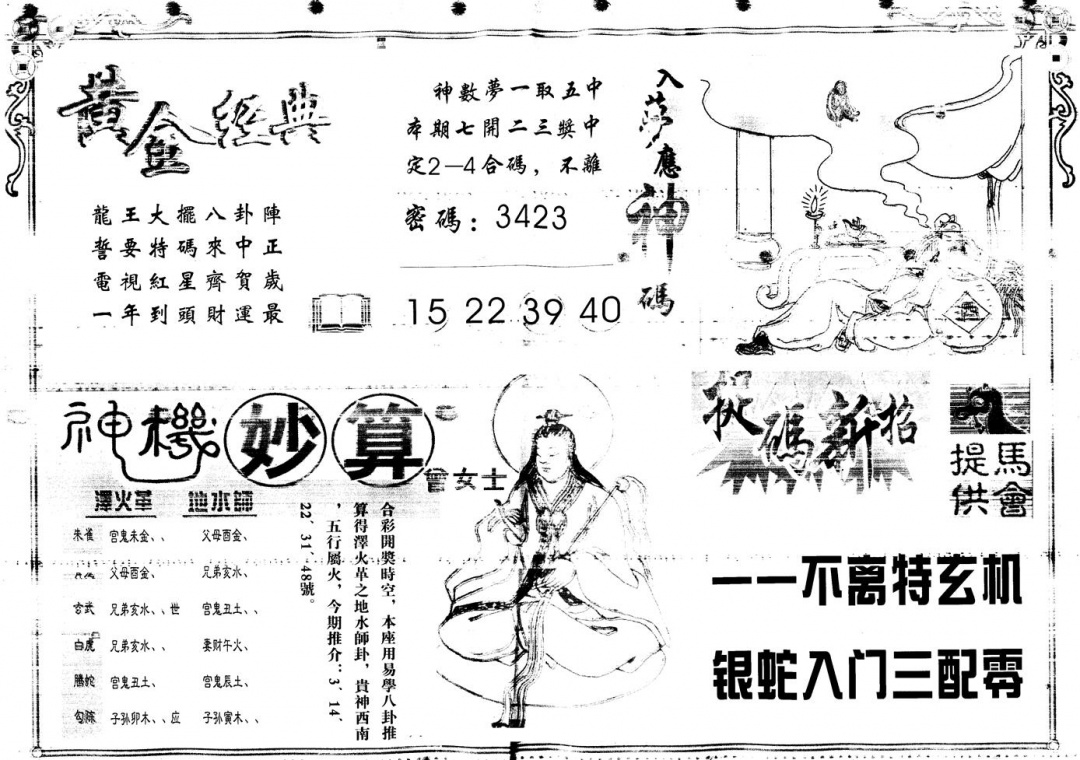 黃金經典
龍王大擺八卦陣
誓要特碼來中正
電視紅星齊賀歲
一年到頭財運最
神數夢一取五中
本期七開二三獎中
定2—4合碼，不離
密碼：3423
15 22 39 40
入夢應神碼
神機妙算
曾女士
澤火革 地水師
朱雀 官鬼未金、、 父母酉金、
父母酉金、 兄弟亥水、、
玄武 兄弟亥水、、世 官鬼丑土、、
白虎 兄弟亥水、、 妻財午火、
騰蛇 官鬼丑土、 官鬼辰土、
勾陈 子孙卯木、、应 子孙寅木、、
合彩開獎時空，本座用易學八卦推
算得澤火革之地水師卦，貴神西南
，五行屬火，今期推介：3、14、
22、31、48號。
捉碼新招
馬會提供
一一不离特玄机
银蛇入门三配零